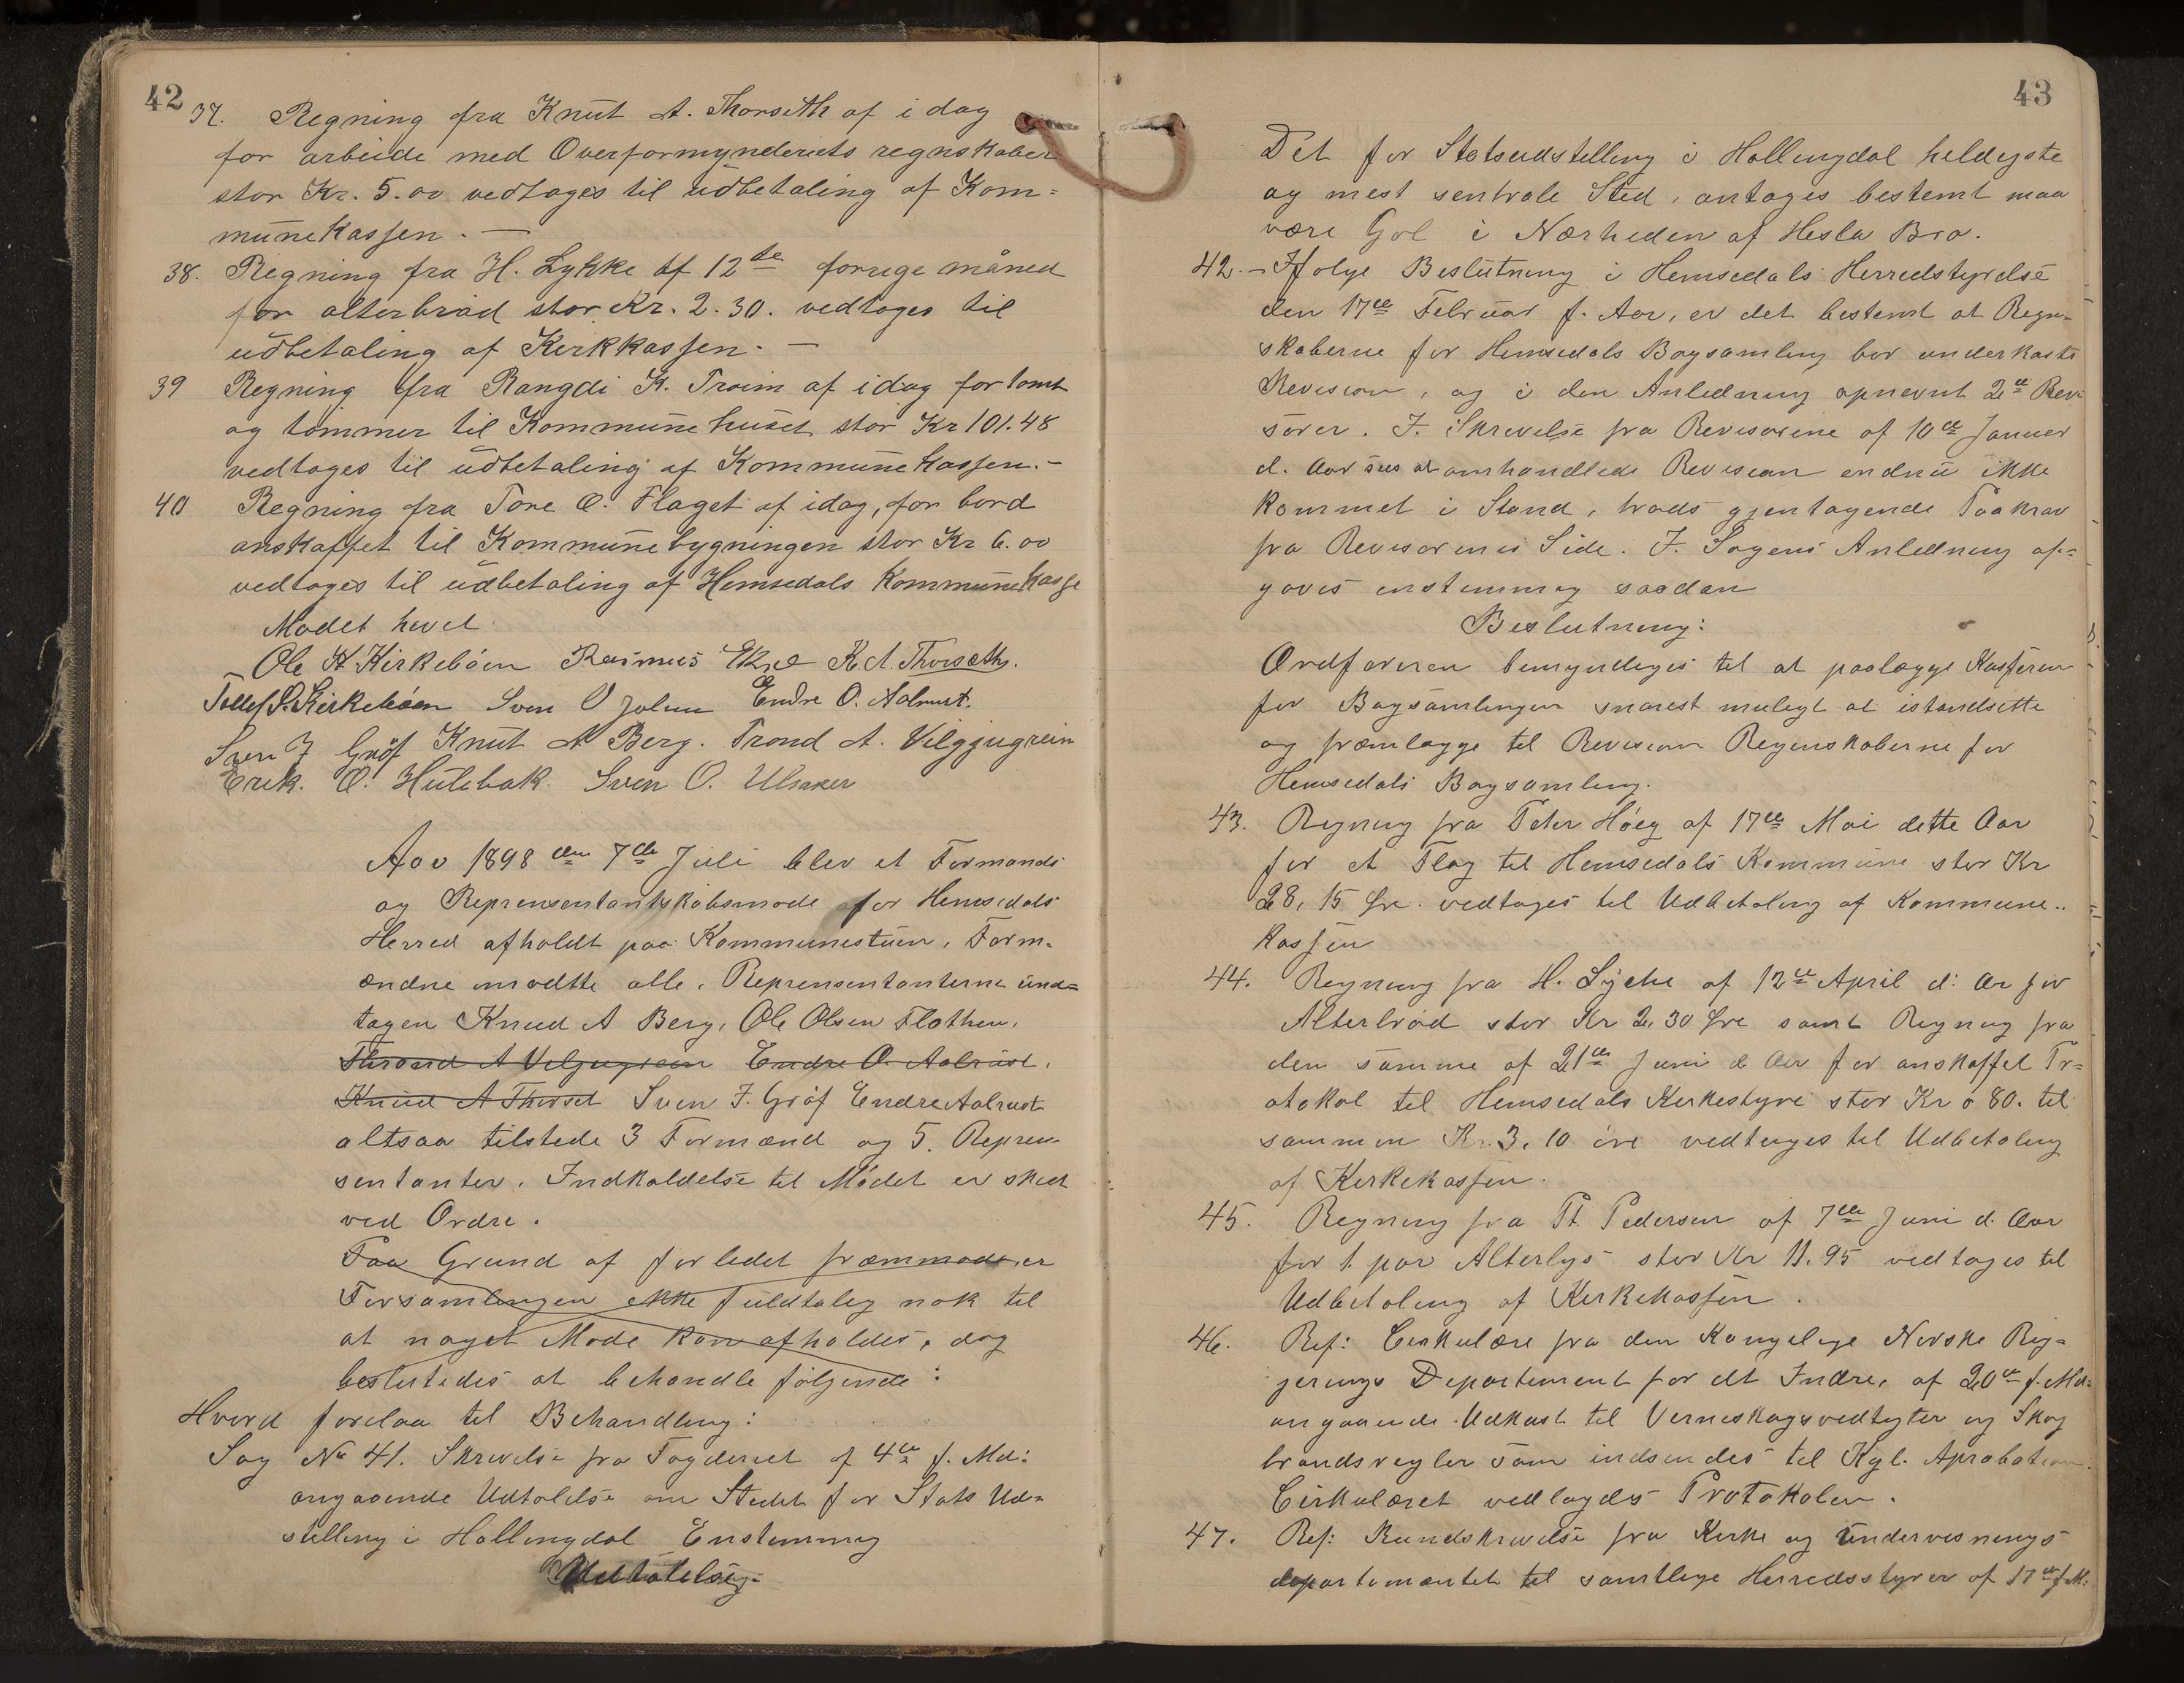 42
37. Regning fra Knut A. Thorseth af i dag
for arbeide med Overformynderiets regnskaber
stor Kr. 5.00 vedtages til udbetaling af Kom=
munekassen. —
38. Regning fra H. Lykke af 12te forrige måned
for alterbrød stor Kr. 2.30. vedtages til
udbetaling af Kirkkassen. —
39 Regning fra Rangdi K. Troim af idag for tomt
og tømmer til Kommunehuset stor Kr 101.48
vedtages til udbetaling af Kommunekassen. -
40 Regning fra Tore O. Flaget af idag, for bord
anskaffet til Kommunebygningen stor Kr 6.00
vedtages til udbetaling af Hemsedals Kommunekasse
Mødet hevet
Ole K. Kirkebøen Rasmus Ekre K. A. Thorseth.
Tollef S. Kirkebøen Sven O Jolun Endre O. Aalrust.
Sven J Grøf Knut A Berg. Trond A. Vilgjugrein
Erik. O. Hulebak. Sven O. Ulsaker
Aar 1898 den 7de Juli blev et Formands
og Reprensentantskabsmøde for Hemsedals
Herred afholdt paa Kommunestuen, Form-
ændne mødtte alle, Reprensentanterne und=
tagen Knud A Berg, Ole Olsen Flothen,
Thrond A Veljugrein Endre O. Aalrust,
Knud A Thorset Sven J. Grøf Endre Aalrust
altsaa tilstede 3 Formænd og 5. Repren-
sentanter. Indkaldelse til Mødet er skeet
ved Ordre.
Paa Grund af forledet fræmmøde, er
Forsamlingen ikke fuldtalig nok til
at noget Møde kan afholdes, dog
besluttedes at behandle følgende:
Hvord forelaa til Behandling:
Sag No 41. Skrivelse fra Fogderiet af 4de f. Md:
angaaende Udtalelse om Stedet for Stats Ud=
stilling i Hallingdal Enstemmig
Udtalelse:
43
Det for Statsudstilling i Hallingdal heldigste
og mest sentrale Sted, antages bestemt maa
være Gol i Nærheden af Hesla Bro.
42. - Ifølge Beslutning i Hemsedals Herredstyrelse
den 17de Februar f. Aar, er det bestemt at Regn-
skaberne for Hemsedals Bogsamling bør underkaste
Revision, og i den Anledning opnevnt 2de Revi
sorer. I. Skrivelse fra Revisorene af 10de Januar
d. Aar sees at omhandlede Revision endnu ikke
kommet i Stand, trods gjentagende Paakrav
fra Revisorenes Side. I. Sagens Anledning af=
gaves enstemmig saadan
Beslutning:
Ordføreren bemyndiges til at paalægge Kasseren
for Bogsamlingen snarest muligt at istandsette
og fræmlægge til Revision Regnskaberne for
Hemsedals Bogsamling.
43. Regning fra Peter Høeg af 17de Mai dette Aar
for et Flag til Hemsedals Kommune stor Kr
28, 15 øre. vedtages til Udbetaling af Kommune..
kassen
44. Regning fra H. Lyche af 12te April d: Ar for
Alterbrød stor Kr 2, 30 øre samt Regning fra
den samme af 21de Juni d Aar for anskaffet Pr=
otokol til Hemsedals Kirkestyre stor Kr 0 80. til
sammen Kr. 3, 10 øre vedtages til Udbetaling
af Kirkekassen.
45. Regning fra Pt. Pedersen af 7de Juni d. Aar
for 1 par Alterlys stor Kr 11.95 vedtages til
Udbetaling af Kirkekassen.
46. Ref: Cirkulære fra den Kongelige Norske Reg=
jerings Departement for det Indre, af 20de f. Md:
angaaende Udkast til Verneskogsvedtgter og Skog
brandsregler som indsendes til Kgl. Aprobation.
Cirkulæret vedlagdes Protokolen.
47. Ref: Rundskrivelse fra Kirke og Undervisnings
departementet til samtlige Herredsstyrer af 17de f. M: